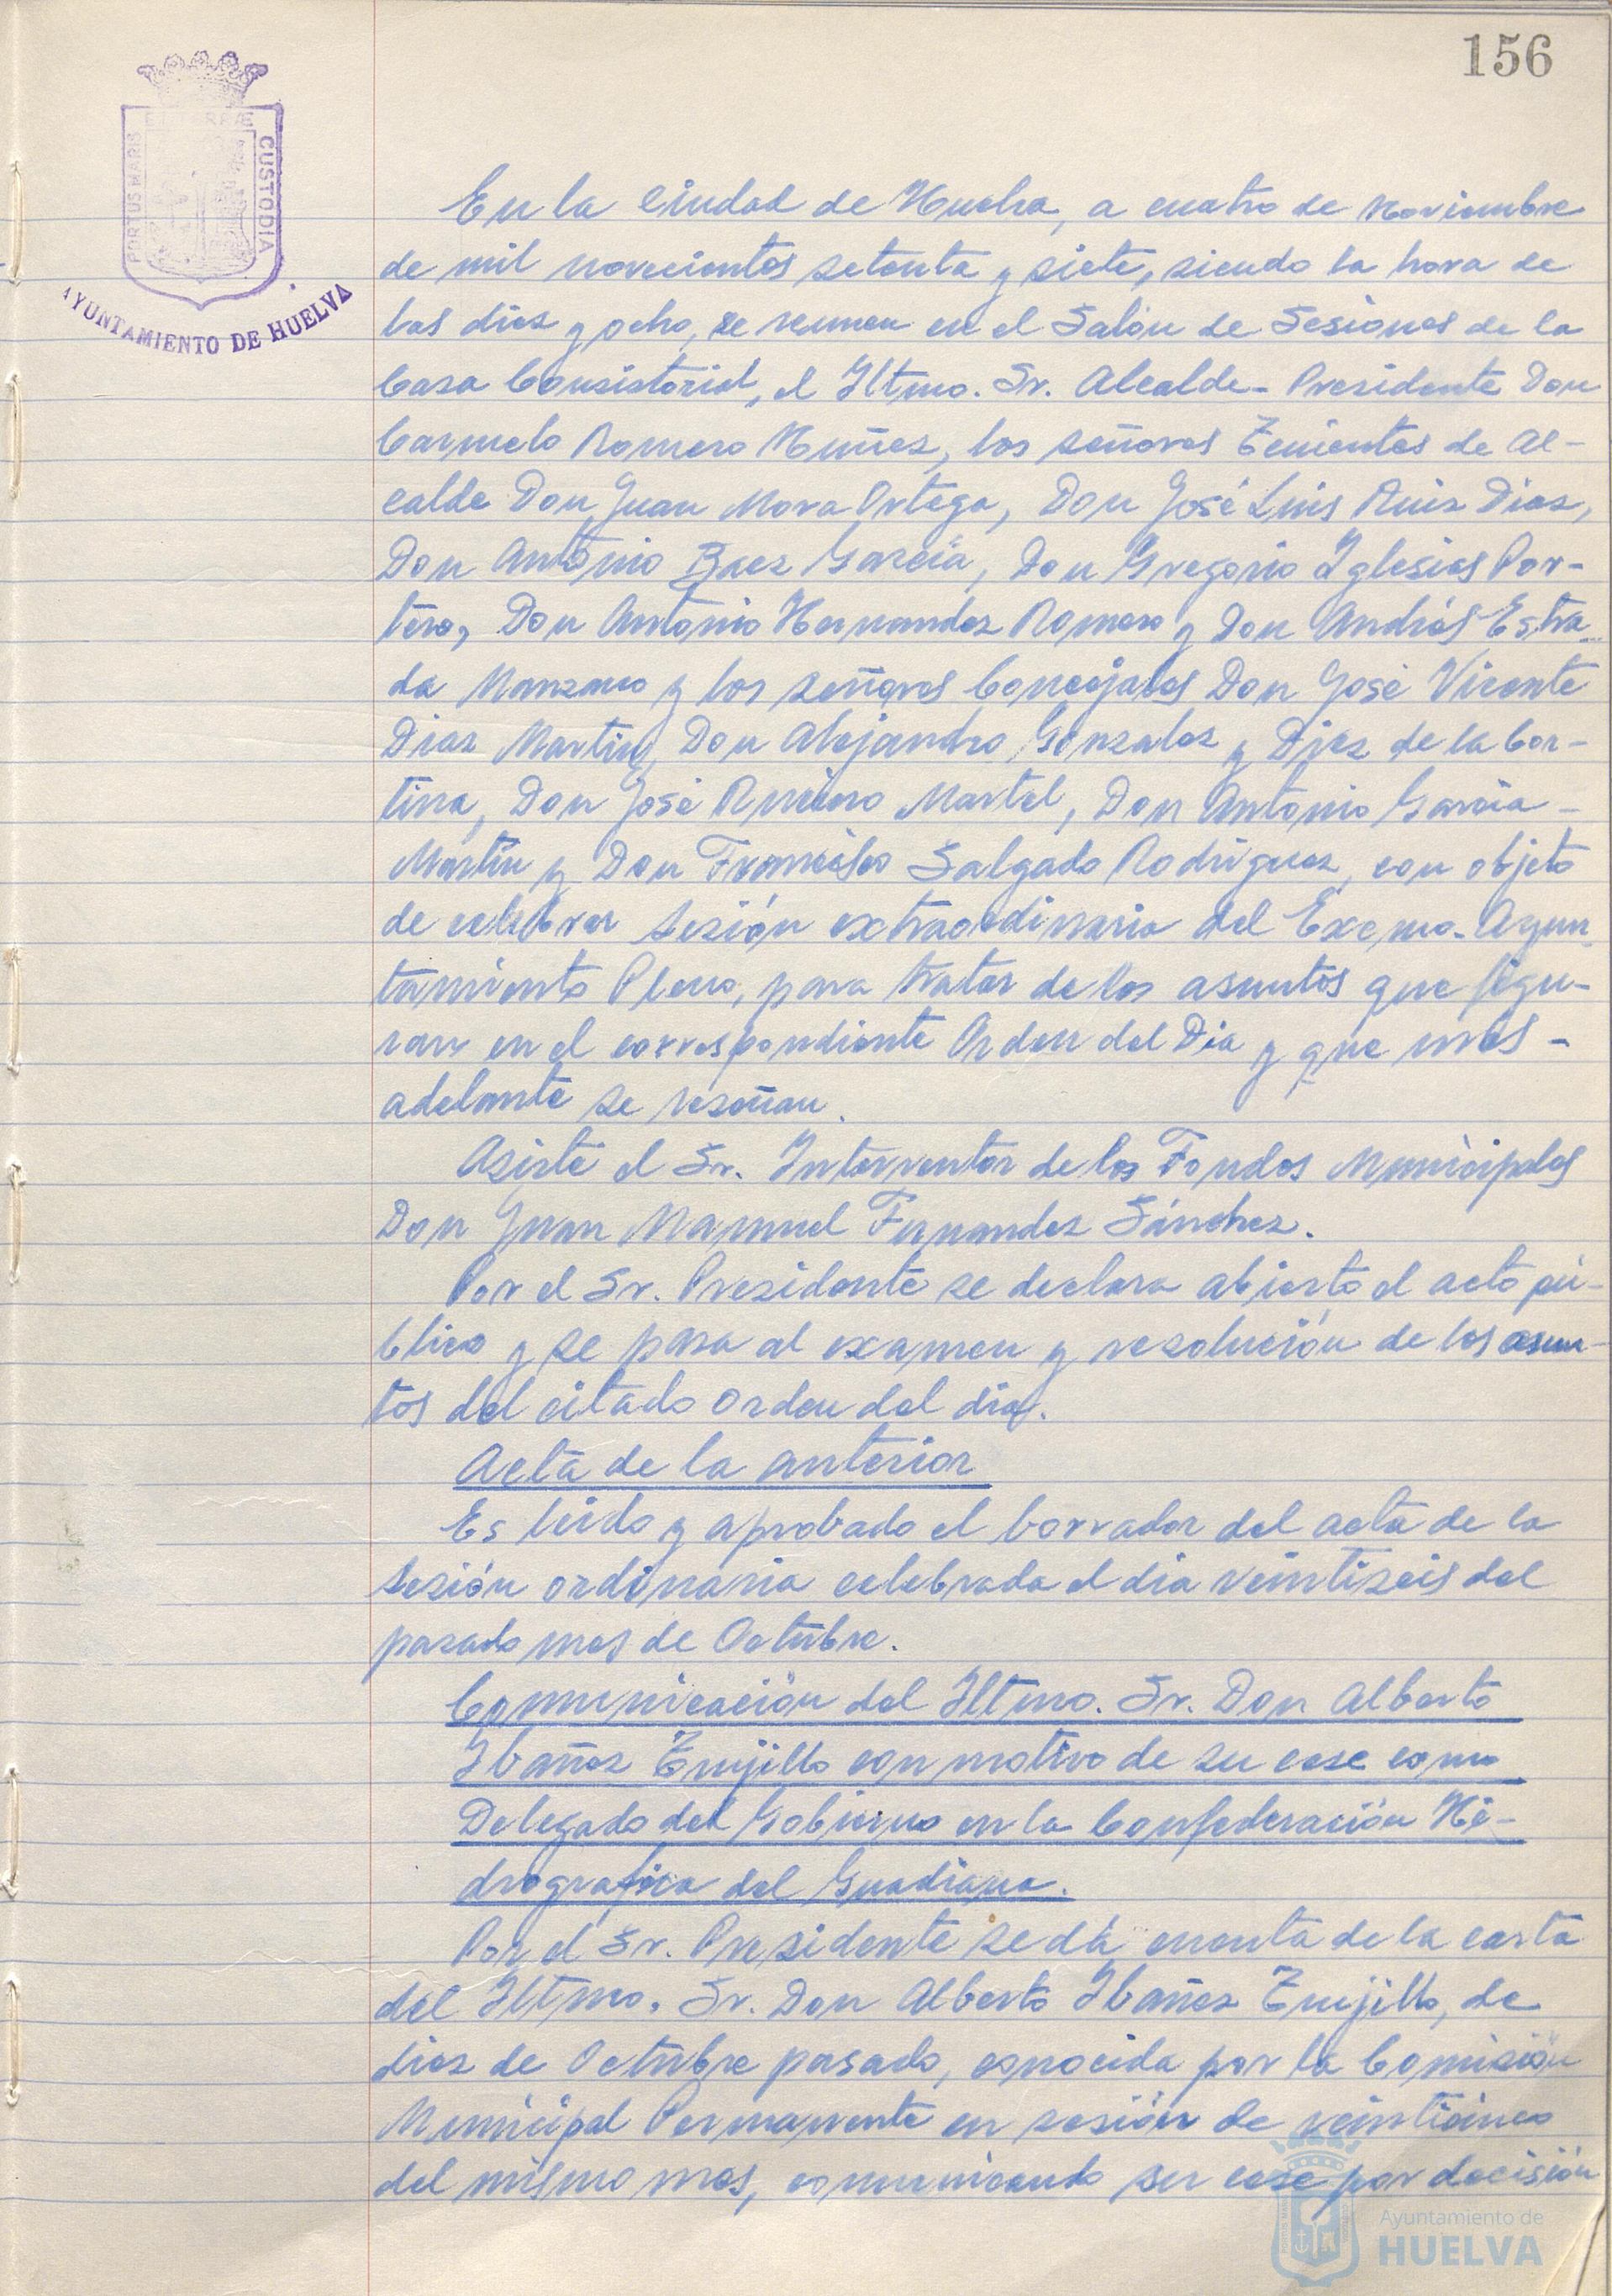 156
PORTUS MARIS
CUSTODIA
AYUNTAMIENTO DE HUELVA
En la Ciudad de Huelva, a cuatro de Noviembre
de mil novecientos setenta y siete, siendo la hora de
las diez y ocho, se reunen en el Salón de Sesiones de la
Casa Consistorial, el Iltmo. Sr. Alcalde-Presidente Don
Carmelo Romero Nuñez, los señores Tenientes de Al-
calde Don Juan Mora Ortega, Don José Luis Ruiz Diaz,
Don Antonio Baez García, Don Gregorio Iglesias Por-
tero, Don Antonio Hernandez Romero y Don Andrés Estra-
da Manzano y los señores Concejales Don José Vicente
Diaz Martin, Don Alejandro Gonzalez y Diez de la Cor-
tina, Don José Rucioso Martel, Don Antonio García
Martín y Don Francisco Salgado Rodriguez, con objeto
de celebrar sesión extraordinaria del Excmo. Ayun-
tamiento Pleno, para tratar de los asuntos que figu-
ran en el correspondiente Orden del Dia y que más -
adelante se reseñan.
Asiste el Sr. Interventor de los Fondos Municipales
Don Juan Manuel Fernandez Sánchez.
Por el Sr. Presidente se declara abierto el acto pú-
blico y se pasa al examen y resolución de los asun-
tos del citado orden del día.
Acta de la anterior
Es leido y aprobado el borrador del acta de la
sesión ordinaria celebrada el dia veintiseis del
pasado mes de Octubre.
Comunicación del Iltmo. Sr. Don Alberto
Ibañez Trujillo con motivo de su cese como
Delegado del Gobierno en la Confederación Hi-
drografica del Guadiana.
Por el Sr. Presidente se dá cuenta de la carta
del Iltmo. Sr. Don Alberto Ibañez Trujillo, de
diez de Octubre pasado, conocida por la Comisión
Municipal Permanente en sesión de veinticinco
del mismo mes, comunicando su cese por decisión
Ayuntamiento de
HUELVA